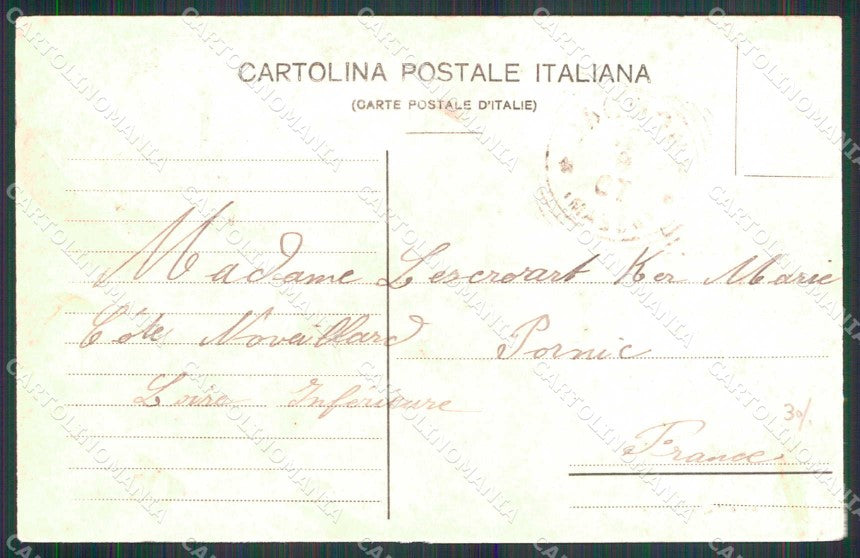 CARTOLINA POSTALE ITALIANA
(CARTE POSTALE D'ITALIE)
Madame Lescroart Ker Marie
Côte Noveillard Pornic
Loire Inférieure
France
30/.
CARTOLINOMANIA